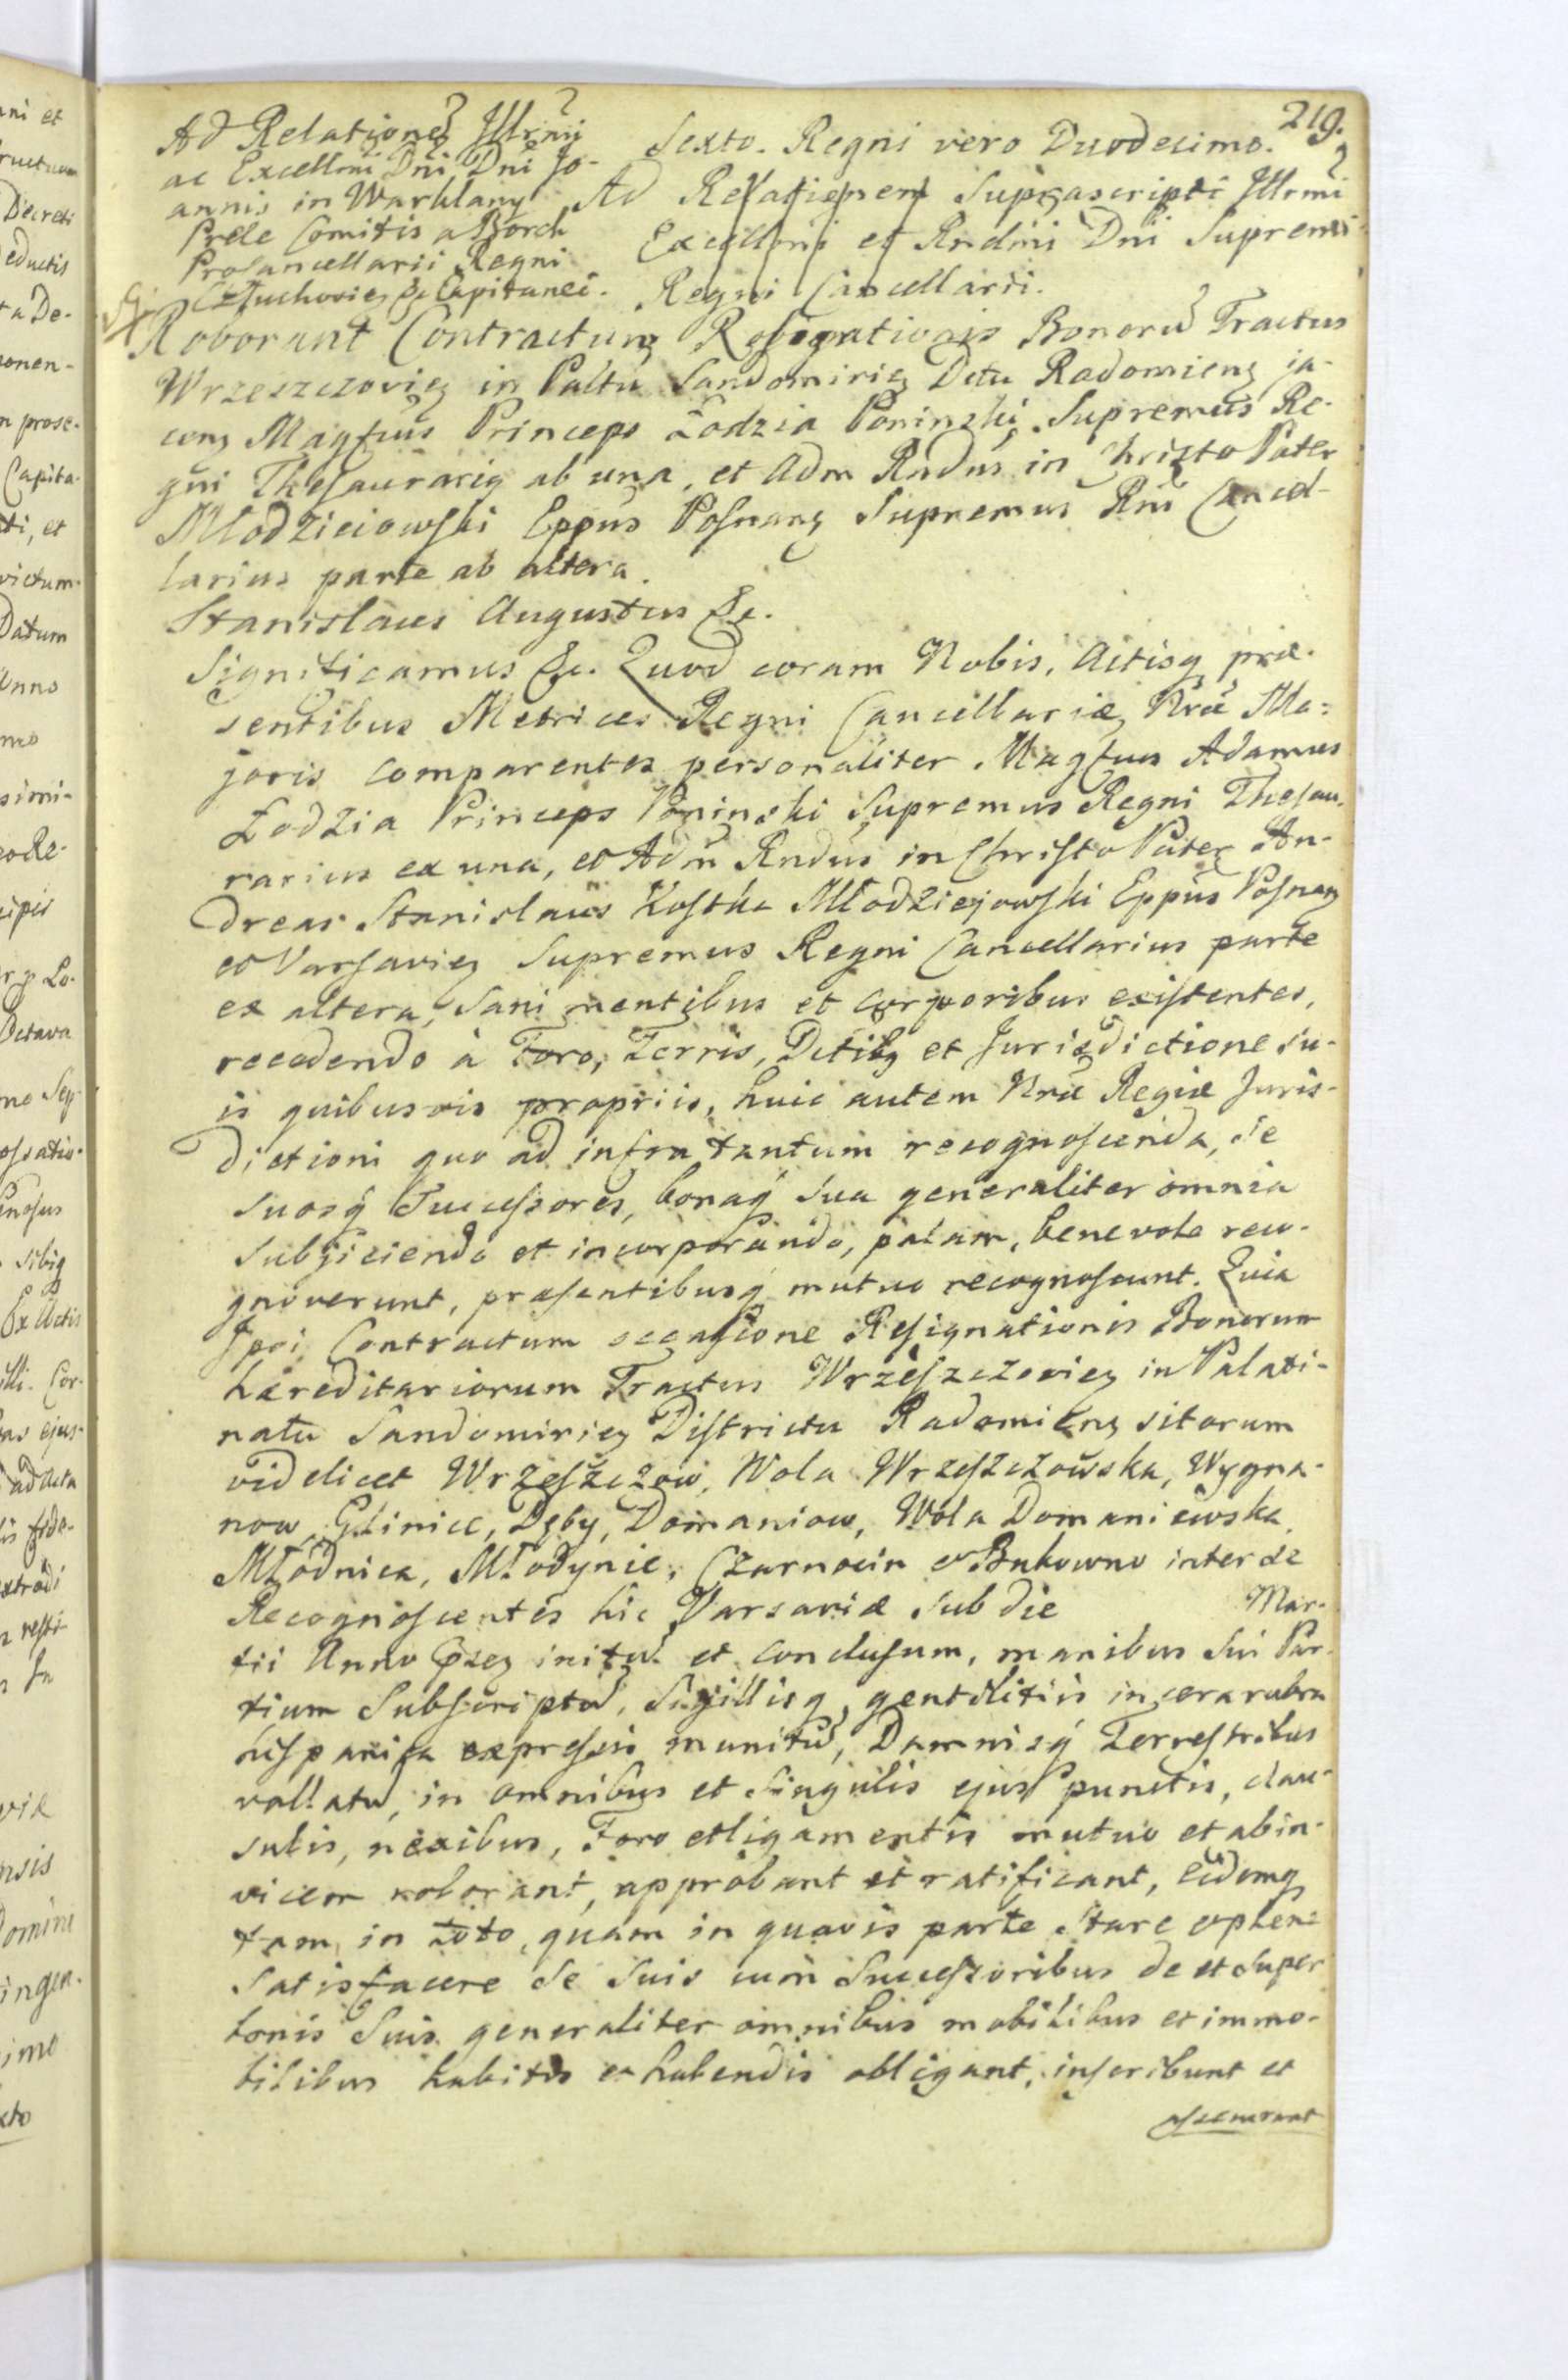 219.
Ad Relationem Illrmi
ac Excellmi Dni Dni Jo-
annis in Warklany
Prele Comitis a Borch
ProCancellarii Regni
Człuchovien &c Capitanei.
Sexto. Regni vero Duodecimo.
Ad Relationem Suprascripti Illrmi
Excellmi et Rndmi Dni Supremi
Regni Cancellarii.
Roborant Contractum Resignationis Bonorū Tractus
Wrzeszczovien in Paltu Sandomirien Dctu Radomiens ja-
cens Magfcus Princeps Łodzia Poninski Supremus Re-
gni Thesaurariq ab una, et Adm Rndus in Christo Pater
Młodzieiowski Eppus Posnans Supremus Rni Cancel-
larius parte ab altera.
Stanislaus Augustus &c.
Significamus &c. Quod coram Nobis, Actisq præ-
sentibus Metrices Regni Cancellariæ Nræ Ma=
joris comparentes personaliter. Magfcus Adamus
Łodzia Princeps Poninski Supremus Regni Thesau-
rarius ex una, et Adm Rndus in Christo Pater An-
dreas Stanislaus Kostka Młodziejowski Eppus Posnans
et Varsavien Supremus Regni Cancellarius parte
ex altera, Sani mentibus et corporibus existentes,
recedendo à Foro, Terris, Dctibq et Jurisdictione su-
is quibusvis propriis, huic autem Nræ Regiæ Juris-
dictioni quo ad infra tantum recognoscenda, se
suosq Successores, bonaq sua generaliter omnia
subjiciendo et incorporando, palam, benevole reco-
gnoverunt, præsentibusq mutuo recognoscunt. Quia
Ipsi Contractum occasione Resignationis Bonorum
hæreditariorum Tractus Wrzeszczovien in Palati-
natu Sandomirien Districtu Radomiens sitorum
videlicet Wrzeszczow, Wola Wrzeszczowska, Wygna-
now, Glinice, Dęby, Domaniow, Wola Domaniewska,
Młodnica, Młodynie, Czarnocin et Bukowno inter se
Recognoscentes hic Varsaviæ sub die Mar-
tii Anno præs initū et conclusum, manibus sui Par-
tium Subscriptū, Sigillisq gentilitiis in cera rubra
hispanica expressis munitū, Damnisq Terrestribus
vallatū, in omnibus et singulis ejus punctis, clau-
sulis, nexibus, Foro et ligamentis mutuo et abin-
vicem roborant, approbant et ratificant, eidemq
tam in toto, quam in quavis parte Stare et plene
satisfacere se suis cum Successoribus de et super
bonis suis generaliter omnibus mobilibus et immo-
bilibus habitis et habendis obligant, inscribunt et
assecurant